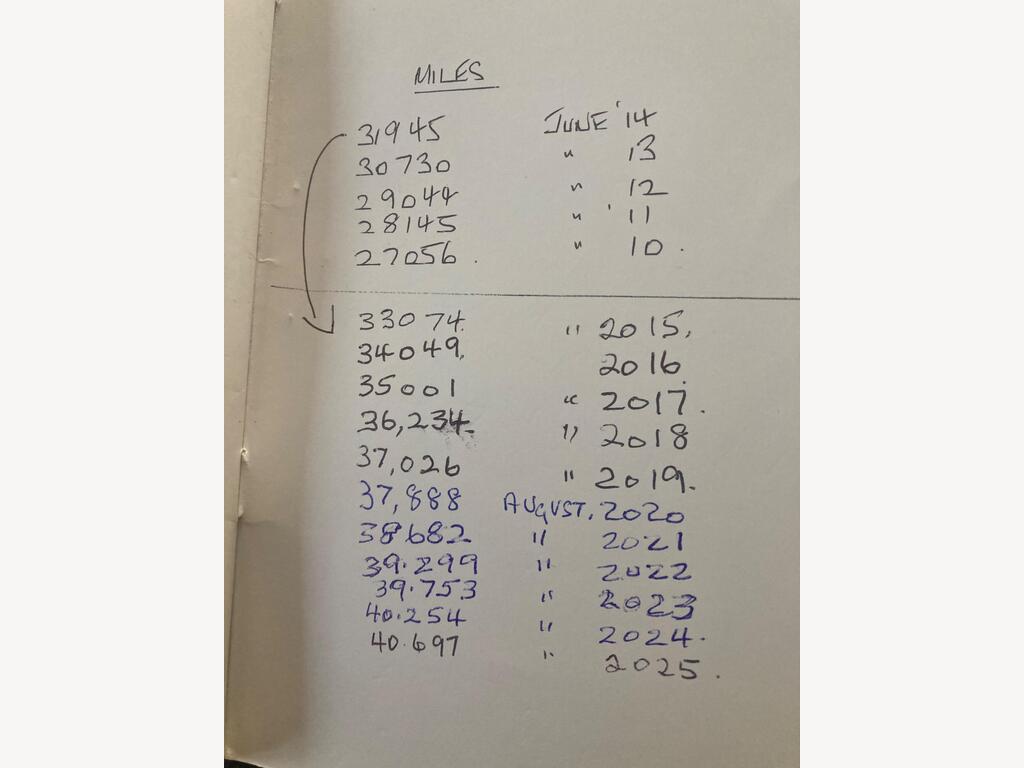 MILES
31945 JUNE '14
30730 " 13
29044 " 12
28145 " '11
27056. " 10.
33074. " 2015.
34049. 2016.
35001 " 2017.
36,234. " 2018
37,026 " 2019.
37,888 AUGUST. 2020
38682 " 2021
39.299 " 2022
39.753 " 2023
40.254 " 2024.
40.697 " 2025.